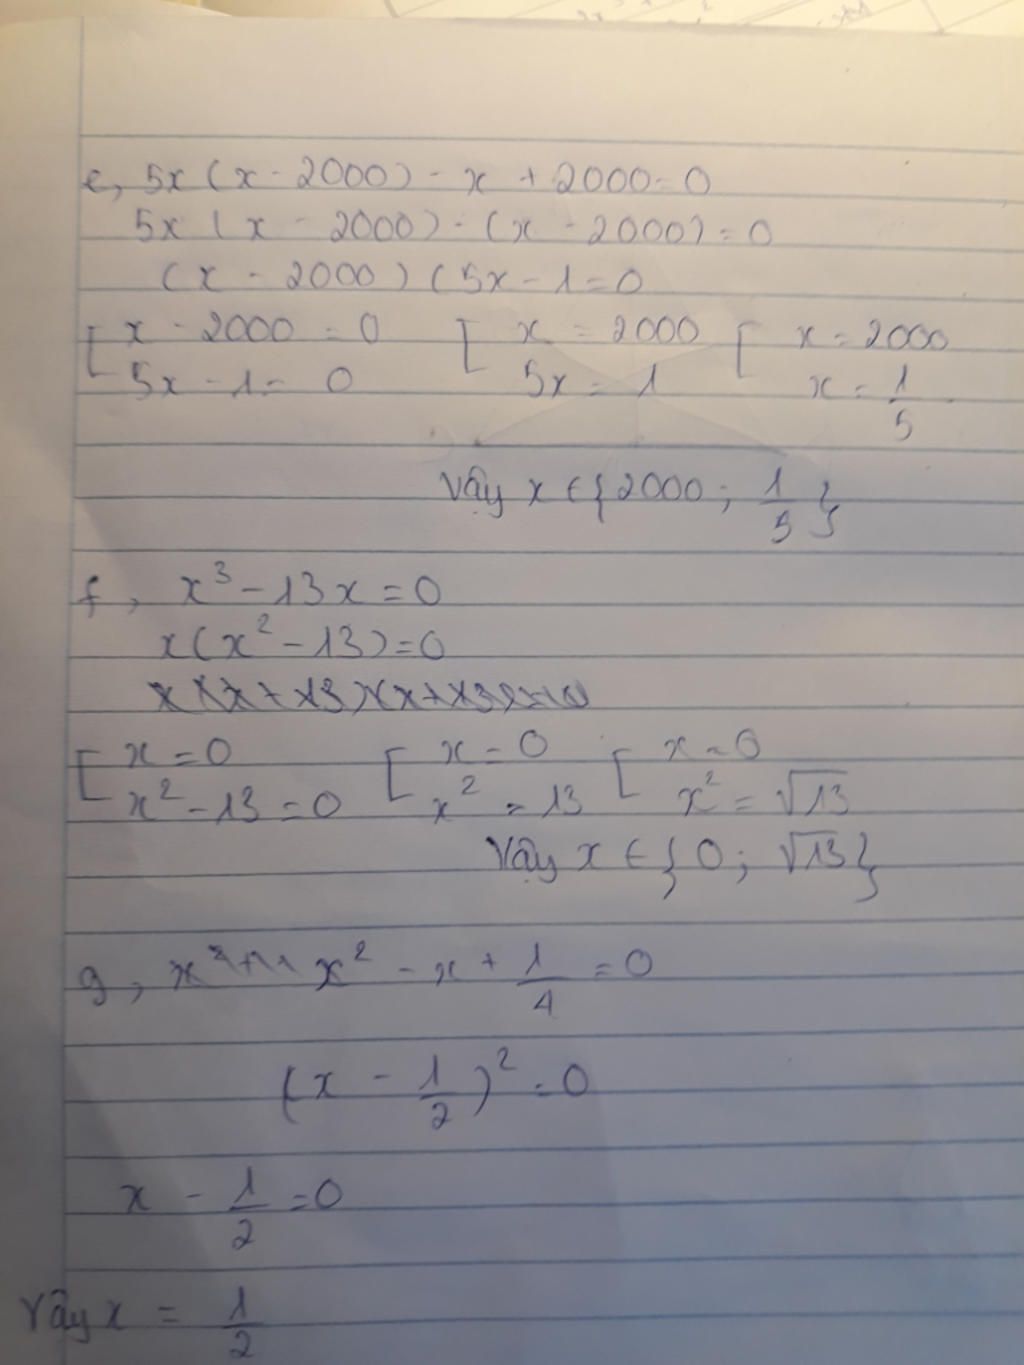 e, 5x(x - 2000) - x + 2000 = 0
5x(x - 2000) - (x - 2000) = 0
(x - 2000)(5x - 1 = 0
[ x - 2000 = 0 [ x = 2000 [ x = 2000
5x - 1 = 0 5x = 1 x = 1/5
Vậy x ∈ {2000; 1/5}
f, x³ - 13x = 0
x(x² - 13) = 0
[ x = 0 [ x = 0 [ x = 0
x² - 13 = 0 x² = 13 x² = √13
Vậy x ∈ {0; √13}
g, x² - x + 1/4 = 0
(x - 1/2)² = 0
x - 1/2 = 0
Vậy x = 1/2